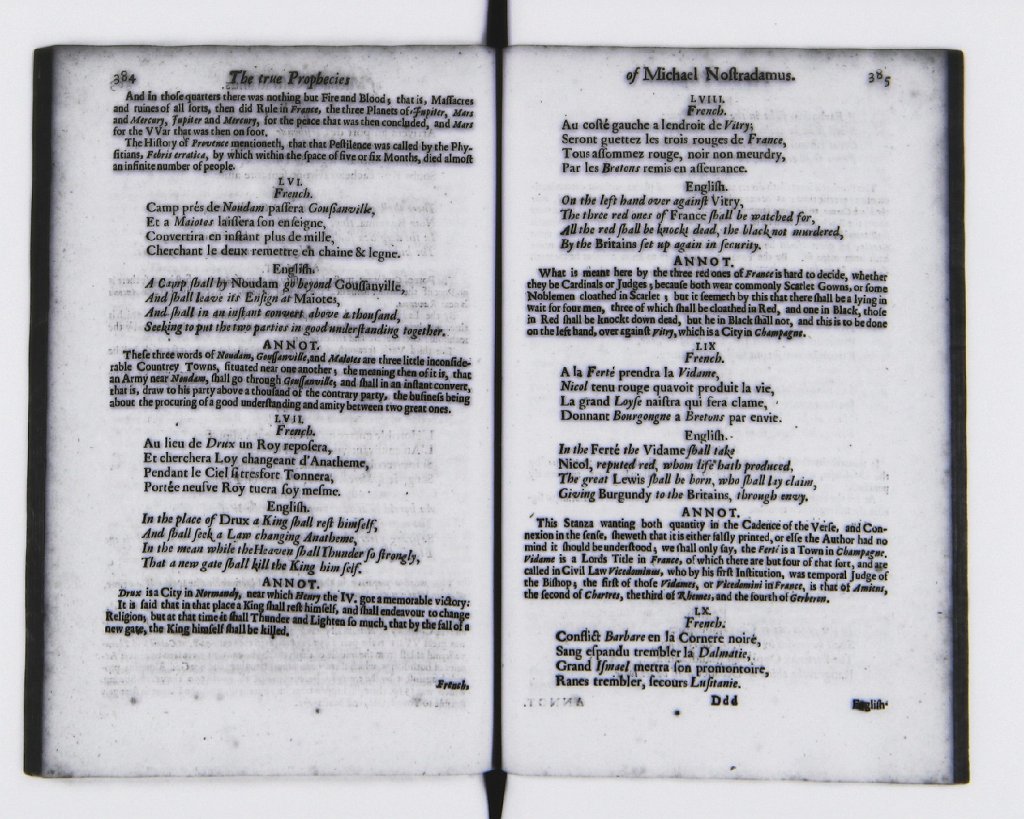 384
The true Prophecies
And In those quarters there was nothing but Fire and Blood; that is, Massacres
and ruines of all sorts, then did Rule in France, the three Planets of Jupiter, Mars
and Mercury, Jupiter and Mercury, for the peace that was then concluded, and Mars
for the VVar that was then on foot.
The History of Provence mentioneth, that that Pestilence was called by the Phy-
sitians, Febris erratica, by which within the space of five or six Months, died almost
an infinite number of people.
LVI.
French.
Camp prés de Noudam passera Goussanville,
Et a Maiotes laissera son enseigne,
Convertira en instant plus de mille,
Cherchant le deux remettre en chaine & legne.
English.
A Camp shall by Noudam go beyond Goussanville,
And shall leave its Ensign at Maiotes,
And shall in an instant convert above a thousand,
Seeking to put the two parties in good understanding together.
ANNOT.
These three words of Noudam, Goussanville, and Maiotes are three little inconside-
rable Countrey Towns, situated near one another; the meaning then of it is, that
an Army near Noudam, shall go through Goussanville, and shall in an instant convert,
that is, draw to his party above a thousand of the contrary party, the business being
about the procuring of a good understanding and amity between two great ones.
LVII.
French.
Au lieu de Drux un Roy reposera,
Et cherchera Loy changeant d'Anatheme,
Pendant le Ciel si tresfort Tonnera,
Portée neufve Roy tuera soy mesme.
English.
In the place of Drux a King shall rest himself,
And shall seek a Law changing Anatheme,
In the mean while the Heaven shall Thunder so strongly,
That a new gate shall kill the King him self.
ANNOT.
Drux is a City in Normandy, near which Henry the IV. got a memorable victory:
It is said that in that place a King shall rest himself, and shall endeavour to change
Religion, but at that time it shall Thunder and Lighten so much, that by the fall of a
new gate, the King himself shall be killed.
French,
of Michael Nostradamus.
385
LVIII.
French.
Au costé gauche a lendroit de Vitry,
Seront guettez les trois rouges de France,
Tous assommez rouge, noir non meurdry,
Par les Bretons remis en asseurance.
English.
On the left hand over against Vitry,
The three red ones of France shall be watched for,
All the red shall be knockt dead, the black not murdered,
By the Britains set up again in security.
ANNOT.
What is meant here by the three red ones of France is hard to decide, whether
they be Cardinals or Judges; because both wear commonly Scarlet Gowns, or some
Noblemen cloathed in Scarlet; but it seemeth by this that there shall be a lying in
wait for four men, three of which shall be cloathed in Red, and one in Black, those
in Red shall be knockt down dead, but he in Black shall not, and this is to be done
on the left hand, over against Vitry, which is a City in Champagne.
LIX
French.
A la Ferté prendra la Vidame,
Nicol tenu rouge quavoit produit la vie,
La grand Loyse naistra qui fera clame,
Donnant Bourgongne a Bretons par envie.
English.
In the Ferté the Vidame shall take
Nicol, reputed red, whom life hath produced,
The great Lewis shall be born, who shall lay claim,
Giving Burgundy to the Britains, through envy.
ANNOT.
This Stanza wanting both quantity in the Cadence of the Verse, and Con-
nexion in the sense, sheweth that it is either falsly printed, or else the Author had no
mind it should be understood; we shall only say, the Ferté is a Town in Champagne.
Vidame is a Lords Title in France, of which there are but four of that sort, and are
called in Civil Law Vicedominus, who by his first Institution, was temporal Judge of
the Bishop; the first of those Vidames, or Vicedomini in France, is that of Amiens,
the second of Chartres, the third of Rhemes, and the fourth of Gerberon.
LX.
French.
Conflict Barbare en la Cornere noire,
Sang espandu trembler la Dalmatie,
Grand Ismael mettra son promontoire,
Ranes trembler, secours Lusitanie.
Ddd
English.